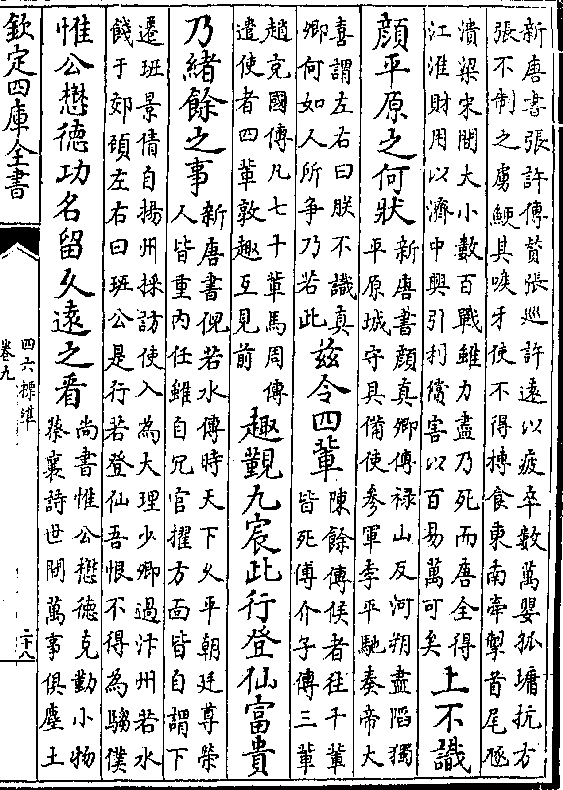 新唐書張許傳贊張巡許遠以疲卒數萬嬰孤墉抗方
張不制之虜鯁其喉牙使不得搏食東南牽掣首尾豗
潰梁宋間大小數百戰雖力盡乃死而唐全得
江淮財用以濟中興引利償害以百易萬可矣
上不識
顔平原之何狀
新唐書顔真卿傳禄山反河朔盡䧟獨
平原城守具備使參軍李平馳奏帝大
喜謂左右曰朕不識真
卿何如人所爭乃若此
兹令四輩
陳餘傳候者往十輩
皆死傅介子傳三輩
趙充國傳凡七十輩馬周傳
遣使者四輩敦趣互見前
趣覲九宸此行登仙富貴
乃緒餘之事
新唐書倪若水傳時天下久平朝廷尊榮
人皆重内任雖自冗官擢方面皆自謂下
遷班景倩自揚州採訪使入為大理少卿過汴州若水
餞于郊頋左右曰班公是行若登仙吾恨不得為騶僕
惟公懋德功名留久遠之看
尚書惟公懋德克勤小物
蔡襄詩世間萬事俱塵土
欽定四庫全書
四六標準
卷九
二十八